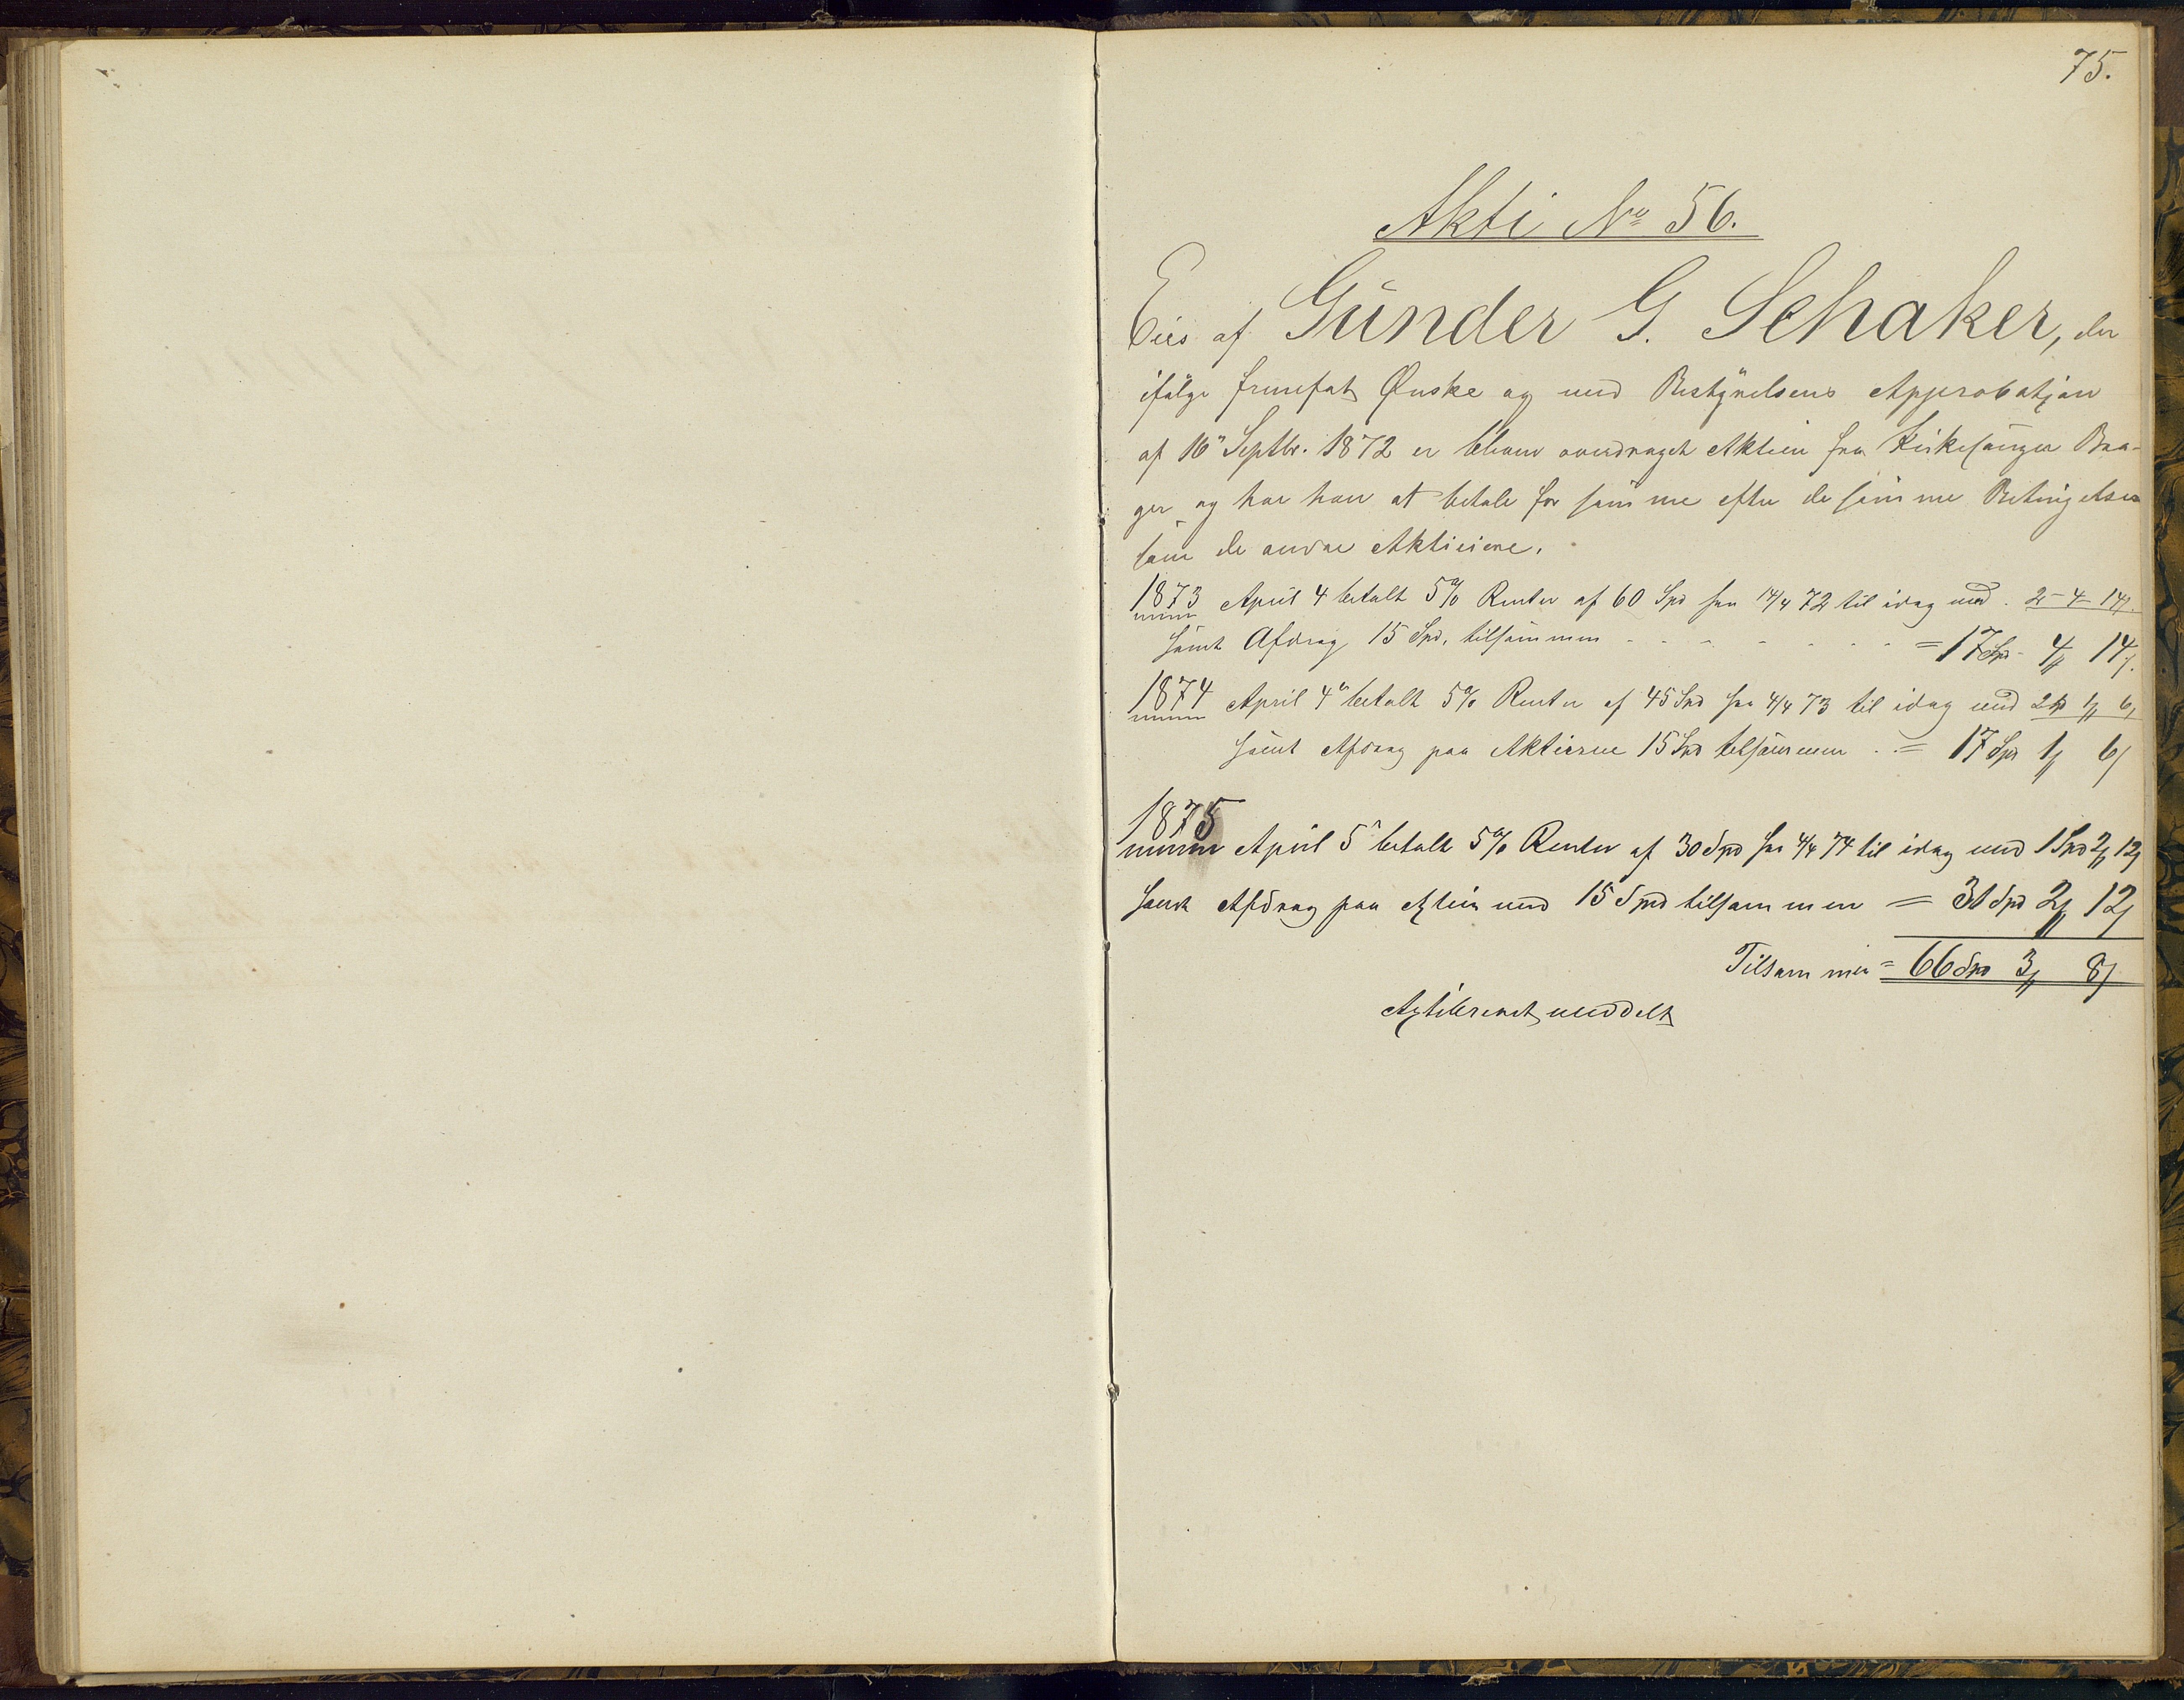 75.
Akti No 56.
Eies af Gunder G. Schaker, der
ifølge fremsat Ønske og med Bestyrelsens Approbatjon
af 16de Septbr. 1872 er bleven overdraget Aktien fra Kirkesanger Braa-
ger og har han at betale for samme efter de samme Betingelser
som de andre Aktieiere.
1873 April 4 betalt 5% Renter af 60 Spd fra 14/4 72 til idag med . 2 - 4 - 14/.
samt Afdrag 15 Spd, tilsammen - - - - - - = 17 Spd - 4 14/.
1874 April 4de betalt 5% Renter af 45 Spd fra 4/4 73 til idag med 2 Spd 1 6/
samt Afdrag paa Aktierne 15 Spd tilsammen . . = 17 Spd 1 6/
1875
April 5te betalt 5% Renter af 30 Spd fra 4/4 74 til idag med 1 Spd 2 12/
samt Afdrag paa Aktien med 15 Spd tilsammen = 31 Spd 2 12/
Tilsammen = 66 Spd 3 8/
Aktiebrevet meddelt